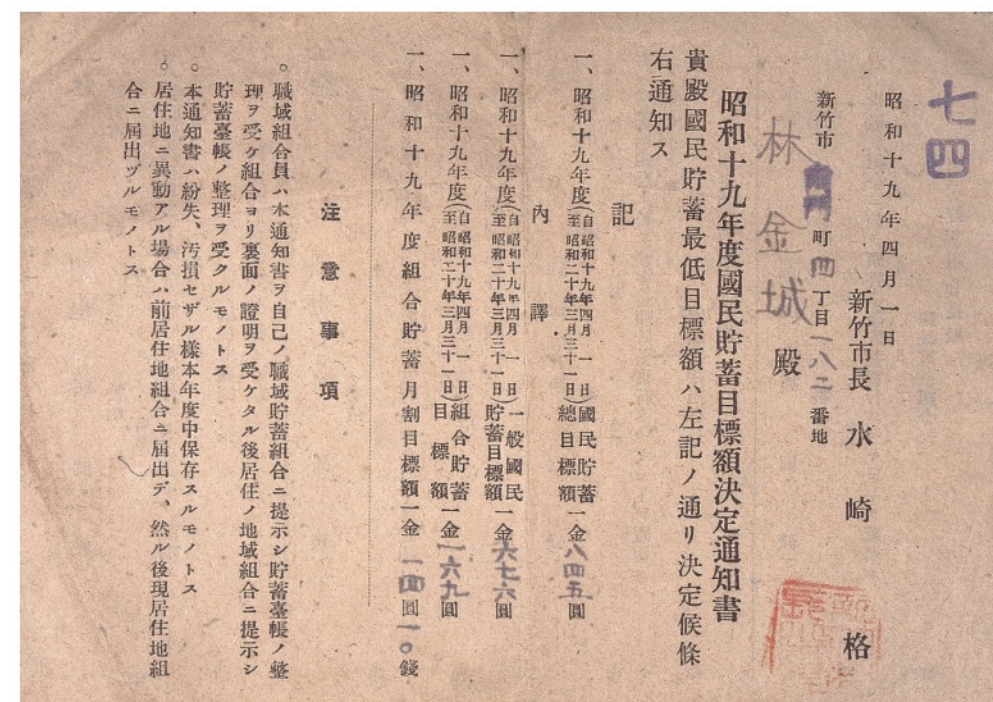 七四
昭和十九年四月一日
新竹市長 水崎格
新竹市南門町四丁目一八二番地
林金城殿
昭和十九年度國民貯蓄目標額決定通知書
貴殿國民貯蓄最低目標額ハ左記ノ通リ決定候條
右通知ス
記
一、昭和十九年度(自昭和十九年四月一日至昭和二十年三月三十一日)國民貯蓄總目標額一金八四五圓
內譯
一、昭和十九年度(自昭和十九年四月一日至昭和二十年三月三十一日)一般國民貯蓄目標額一金六七六圓
一、昭和十九年度(自昭和十九年四月一日至昭和二十年三月三十一日)組合貯蓄目標額一金一六九圓
一、昭和十九年度組合貯蓄月割目標額一金一四圓一〇錢
注意事項
○職域組合員ハ本通知書ヲ自己ノ職域貯蓄組合ニ提示シ貯蓄臺帳ノ整
理ヲ受ケ組合ヨリ裏面ノ證明ヲ受ケタル後居住ノ地域組合ニ提示シ
貯蓄臺帳ノ整理ヲ受クルモノトス
○本通知書ハ紛失、汚損セザル樣本年度中保存スルモノトス
○居住地ニ異動アル場合ハ前居住地組合ニ屆出デ、然ル後現居住地組
合ニ屆出ヅルモノトス